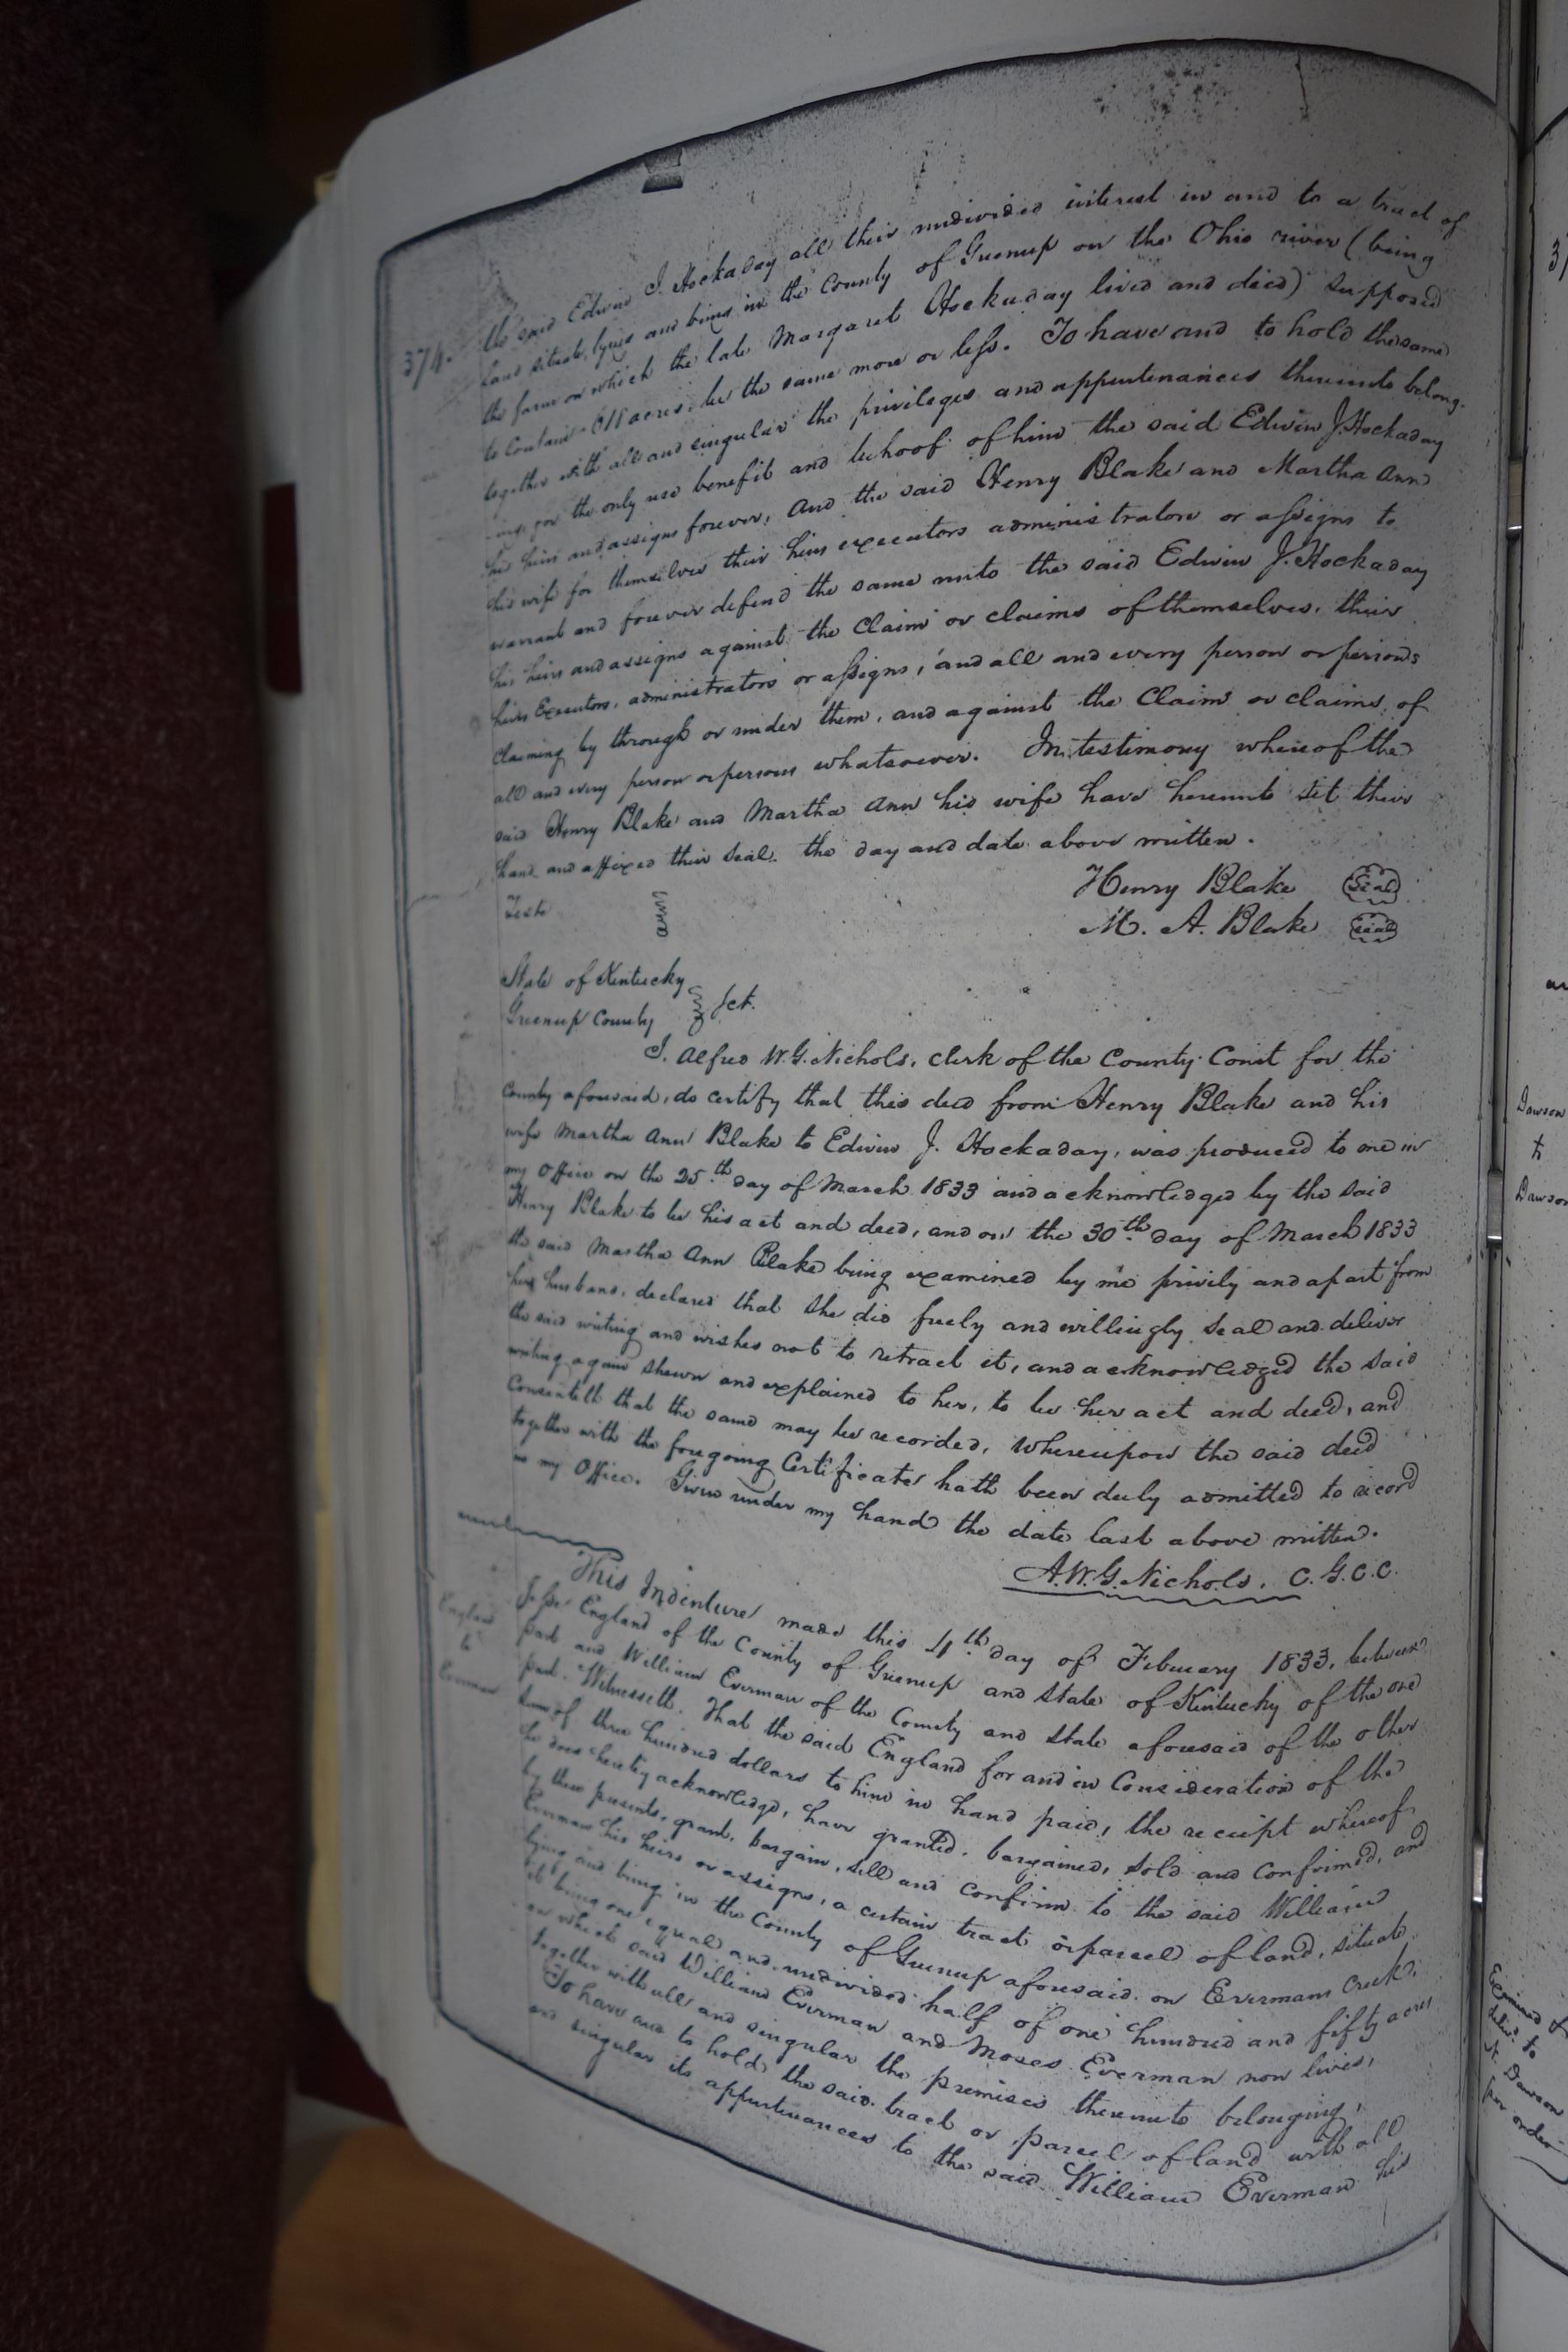 374.
the said Edwin J. Hockaday all their undivided interest in and to a tract of
land situate, lying and being in the County of Greenup on the Ohio river (being
the farm on which the late Margaret Hockaday lived and died) supposed
to contain acres, be the same more or less. To have and to hold the same
together with all and singular the privileges and appurtenances thereunto belong-
-ing, for the only use benefit and behoof of him the said Edwin J. Hockaday
his heirs and assigns forever, And the said Henry Blake and Martha Ann
his wife for themselves their heirs executors administrators or assigns to
warrant and forever defend the same unto the said Edwin J. Hockaday
his heirs and assigns against the Claim or claims of themselves, their
heirs Executors, administrators or assigns, and all and every person or persons
claiming by through or under them, and against the Claim or claims of
all and every person or persons whatsoever. In testimony whereof the
said Henry Blake and Martha Ann his wife have hereunto set their
hand and affixed their seal. the day and date above written.
Henry Blake Seal
Teste
M. A. Blake Seal
State of Kentucky
Greenup County } Sct.
I. Alfred W. G. Nichols, clerk of the County Court for the
County aforesaid, do certify that this deed from Henry Blake and his
wife Martha Ann Blake to Edwin J. Hockaday, was produced to me in
my Office on the 25th day of March 1833 and acknowledged by the said
Henry Blake to be his act and deed, and on the 30th day of March 1833
the said Martha Ann Blake being examined by me privily and apart from
her husband, declared that she did freely and willingly seal and deliver
the said writing and wishes not to retract it, and acknowledged the said
writing again shewn and explained to her, to be her act and deed, and
Consenteth that the same may be recorded, Whereupon the said deed
together with the foregoing Certificate hath been duly admitted to record
in my Office. Given under my hand the date last above written.
A. W. G. Nichols. C. G. C. C.
England
to
Everman
This Indenture made this 4th day of February 1833, between
Jesse England of the County of Greenup and State of Kentucky of the one
part and William Everman of the County and State aforesaid of the other
part. Witnesseth. That the said England for and in Consideration of the
sum of three hundred dollars to him in hand paid, the receipt whereof
he does hereby acknowledge, have granted, bargained, sold and confirmed, and
by these presents, grant, bargain, sell and confirm to the said William
Everman his heirs or assigns, a certain tract or parcel of land, situate
lying and being in the County of Greenup aforesaid. on Evermans Creek.
it being one equal and undivided half of one hundred and fifty acres
on which said William Everman and Moses Everman now lives,
together with all and singular the premises thereunto belonging,
To have and to hold the said tract or parcel of land with all
and singular its appurtenances to the said William Everman his
Dawson
to
Dawson
Examined &
deliv. to
Dawson
per order